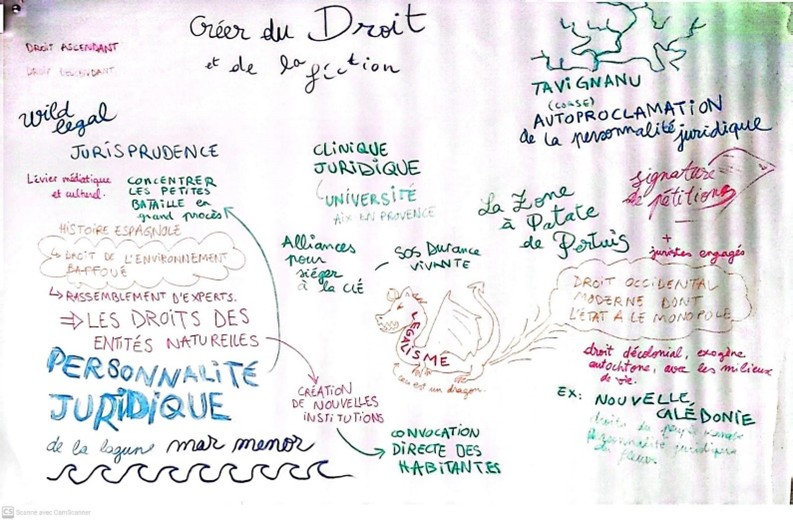 Créer du Droit
et de la fiction
DROIT ASCENDANT
DROIT DESCENDANT
wild
legal
JURISPRUDENCE
Levier médiatique
et culturel.
CONCENTRER
LES PETITES
BATAILLE en
grand procès
HISTOIRE ESPAGNOLE
↳ DROIT DE L'ENVIRONNEMENT
BAFFOUÉ
↳ RASSEMBLEMENT D'EXPERTS.
⇒ LES DROITS DES
ENTITÉS NATURELLES
PERSONNALITÉ
JURIDIQUE
de la lagune mar menor
CLINIQUE
JURIDIQUE
UNIVERSITÉ
AIX EN PROVENCE
Alliances
pour
siéger
à la CLÉ
SOS Durance
VIVANTE
LEGALISME
est un dragon.
CRÉATION
DE NOUVELLES
INSTITUTIONS
CONVOCATION
DIRECTE DES
HABITANTES
TAVIGNANU
(CORSE)
AUTOPROCLAMATION
de la personnalité juridique
signature
de pétitions
+
juristes engagés
La Zone
à Patate
de Pertuis
DROIT OCCIDENTAL
MODERNE DONT
L'ÉTAT A LE MONOPOLE
droit décolonial, exogène
autochtone, avec les milieux
de vie.
EX: NOUVELLE
CALÉDONIE
droits du pays
personnalité juridique
du fleuve
CS Scanné avec CamScanner